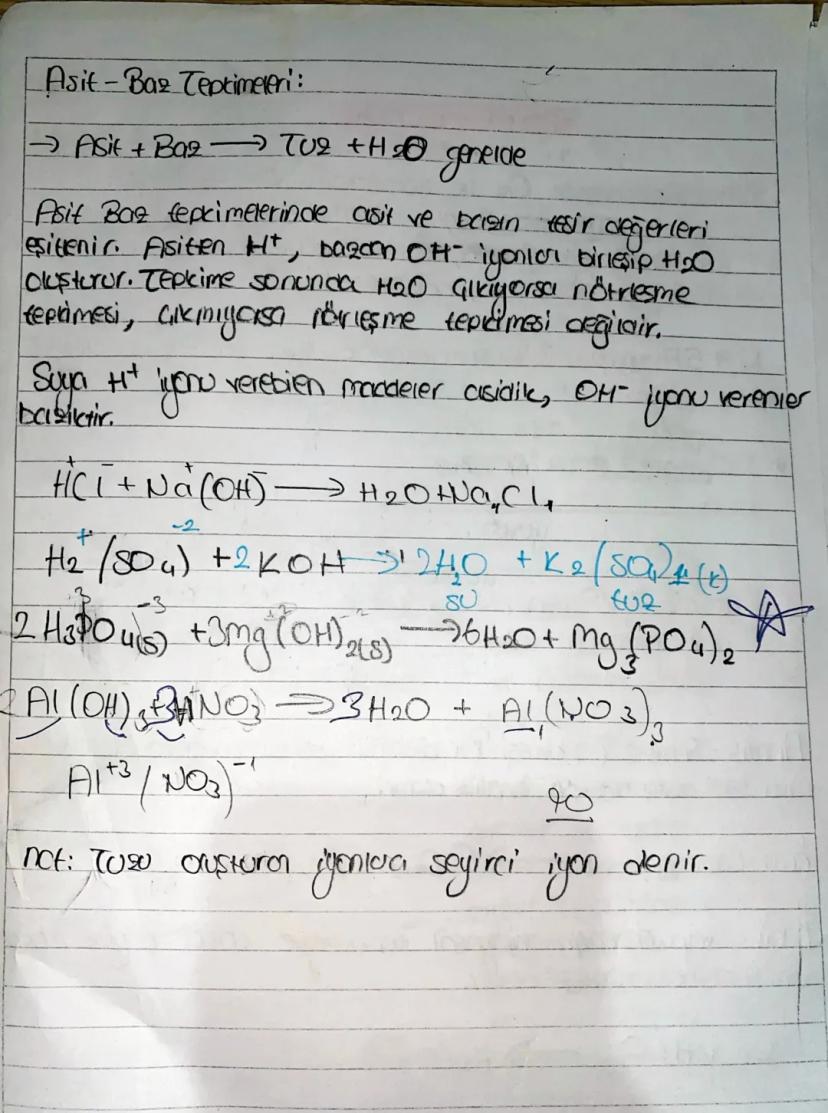 Asit - Baz Tepkimeleri:
→ Asit + Baz → TUZ + H2O genelde
Asit Baz tepkimelerinde asit ve bazın tesir değerleri
eşitlenir. Asitten H⁺, bazdan OH⁻ iyonları birleşip H2O
oluşturur. Tepkime sonunda H2O çıkıyorsa nötrleşme
tepkimesi, çıkmıyorsa nötrleşme tepkimesi değildir.
Suya H⁺ iyonu verebilen maddeler asidik, OH⁻ iyonu verenler
baziktir.
H⁺Cl⁻ + Na⁺(OH)⁻ → H2O + Na₁Cl₁
H2⁺(SO4)⁻² + 2KOH → 2H2O + K2(SO4)₁(k)
su tuz
2H3PO4(s)⁻³ + 3Mg⁺²(OH)⁻2(s) → 6H2O + Mg3(PO4)2
Al(OH)3 + 3HNO3 → 3H2O + Al₁(NO3)3
Al⁺³ / NO3)⁻¹
90
not: Tuzu oluşturan iyonlara seyirci iyon denir.